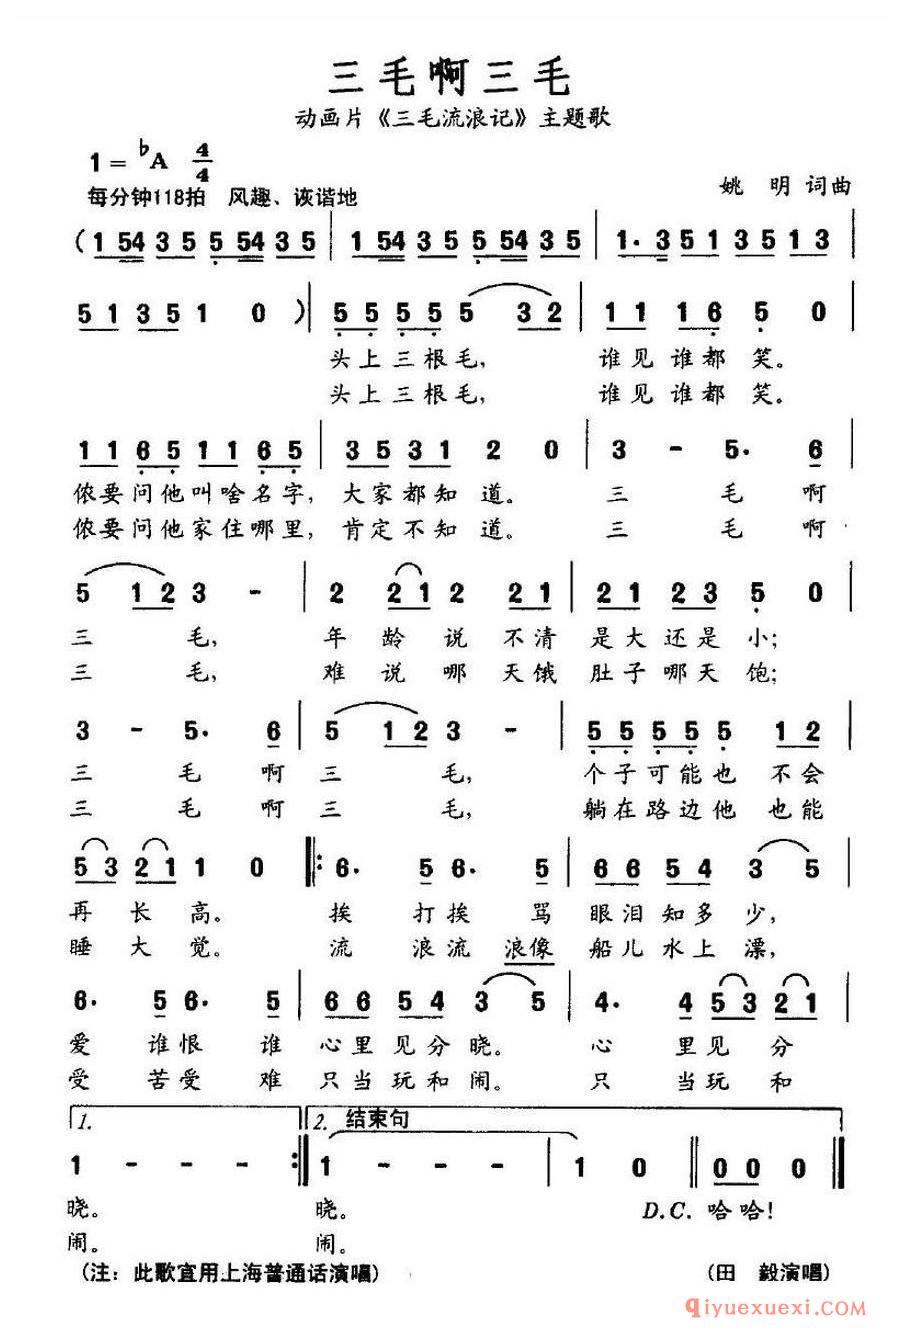 三毛啊三毛
动画片《三毛流浪记》主题歌
1=♭A 4/4
每分钟118拍 风趣、诙谐地
姚 明 词曲
(1 54 3 5 5 54 3 5 | 1 54 3 5 5 54 3 5 | 1· 3 5 1 3 5 1 3
5 1 3 5 1 0 )| 5 5 5 5 5 3 2 | 1 1 1 6 5 0 |
头上三根毛, 谁见谁都笑。
头上三根毛, 谁见谁都笑。
1 1 6 5 1 1 6 5 | 3 5 3 1 2 0 | 3 - 5· 6
侬要问他叫啥名字, 大家都知道。 三 毛啊
侬要问他家住哪里, 肯定不知道。 三 毛啊
5 1 2 3 - | 2 2 1 2 2 1 | 2 1 2 3 5 0 |
三 毛, 年龄说不清 是大还是小;
三 毛, 难说哪天饿 肚子哪天饱;
3 - 5· 6 | 5 1 2 3 - | 5 5 5 5 5 1 2
三 毛啊 三 毛, 个子可能也不会
三 毛啊 三 毛, 躺在路边他也能
5 3 2 1 1 0 |: 6· 5 6· 5 | 6 6 5 4 3 5 |
再长高。 挨打挨骂 眼泪知多少,
睡大觉。 流浪流浪像 船儿水上漂,
6· 5 6· 5 | 6 6 5 4 3 5 | 4· 4 5 3 2 1 |
爱谁恨谁 心里见分晓。 心里见分
受苦受难 只当玩和闹。 只当玩和
1. 2. 结束句
1 - - - :| 1 - - - | 1 0 || 0 0 0 0 ||
晓。 晓。 D.C. 哈哈!
闹。 闹。
(注：此歌宜用上海普通话演唱) (田 毅演唱)
qiyuexuexi.com